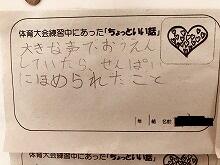 体育大会練習中にあった「ちょっといい話」
大きな声でおうえん
していたら、せんぱい
にほめられたこと
年 組 名前
体育大会練習中にあった「ちょっといい話」